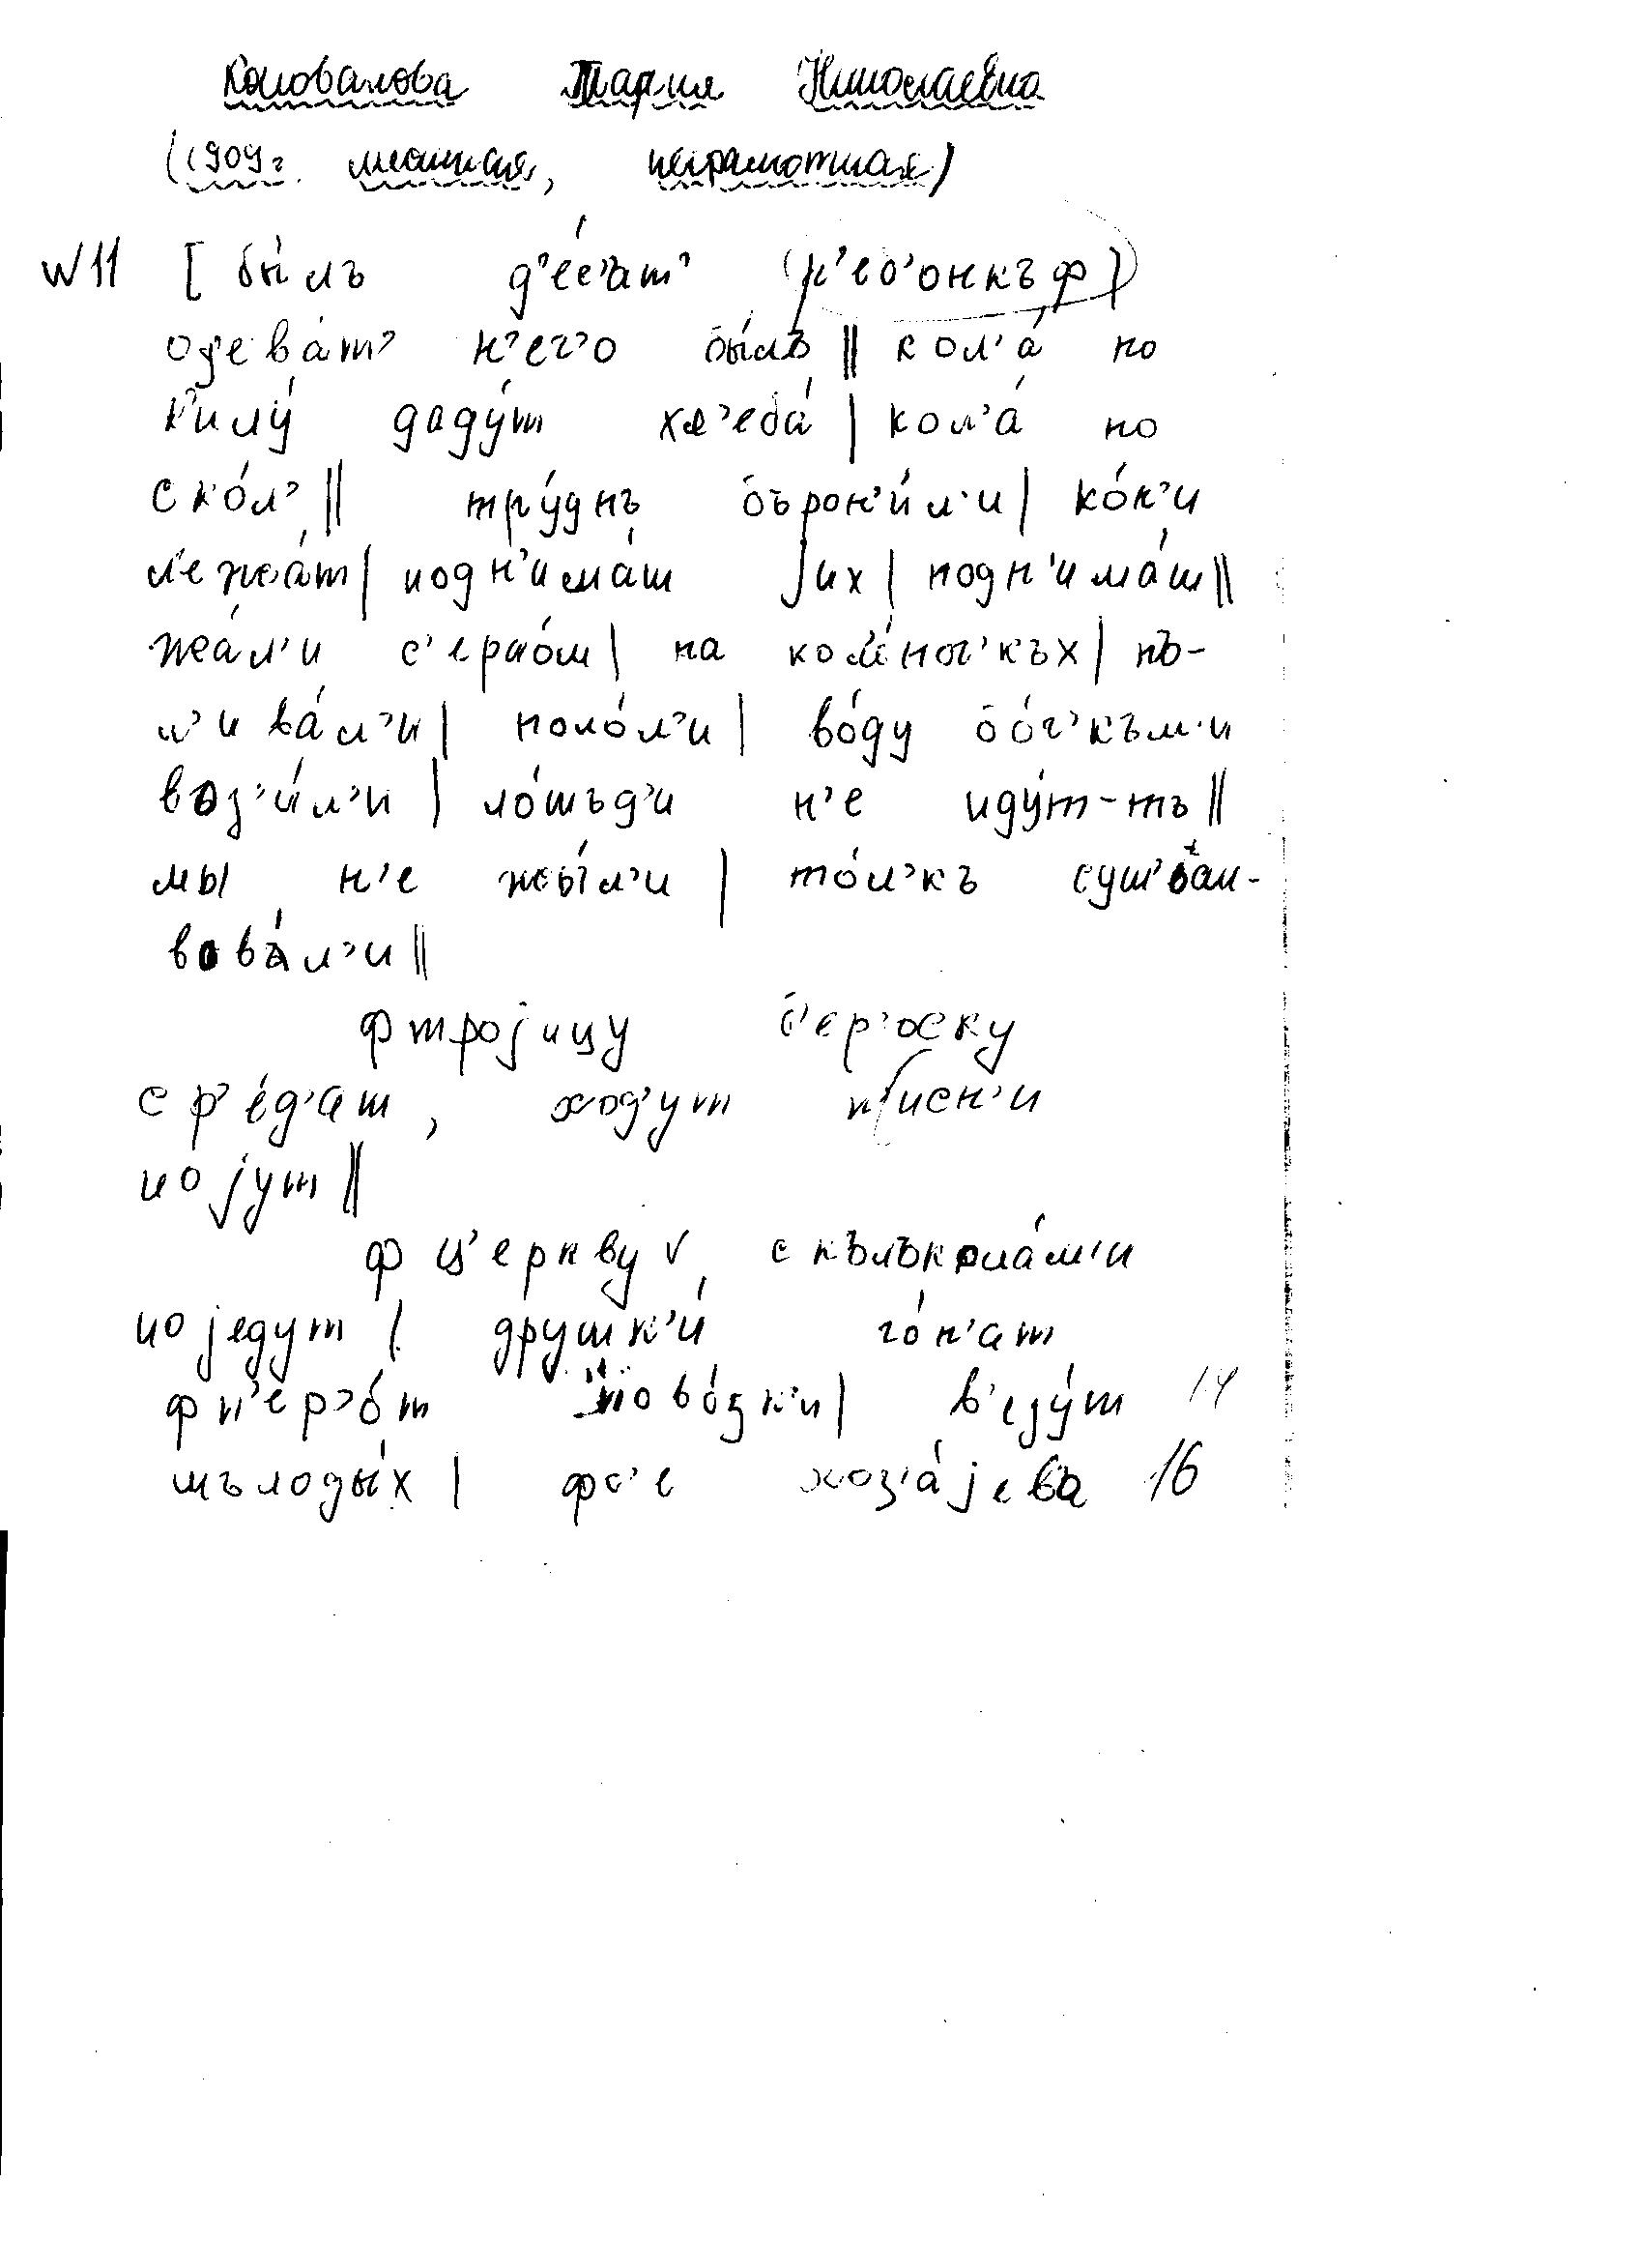 Коновалова Мария Николаевна
(1909г. местная, неграмотная)
№11 [бы́лъ д'е́с'ат' (р'еб'онкъф)
одева́т' н'ег'о бы́лъ || кол'а́ по
к'илу́ даду́т хл'еба́ | кол'а́ по
ско́л' || тру́днъ бърон'и́л'и | ко́н'и
л'ежа́т | подн'има́ш jих | подн'има́ш ||
жа́л'и с'ерпо́м | на кол'е́ноч'къх | пъ-
л'ива́л'и | поло́л'и | во́ду бо́ч'към'и
воз'и́л'и | ло́шъд'и н'е иду́т-тъ ||
мы н'е жы́л'и | то́л'къ сушш'ест-
вова́л'и ||
фтроjицу б'ер'оску
ср'е́д'ат, ход'ут п'исн'и
поjут ||
ф ц'еркву v скълъкола́м'и
поjедут | друшк'и́ го́н'ат
фп'ер'о́т пово́зк'и | в'езу́т 14
мълоды́х | фс'е хоз'а́jева 16